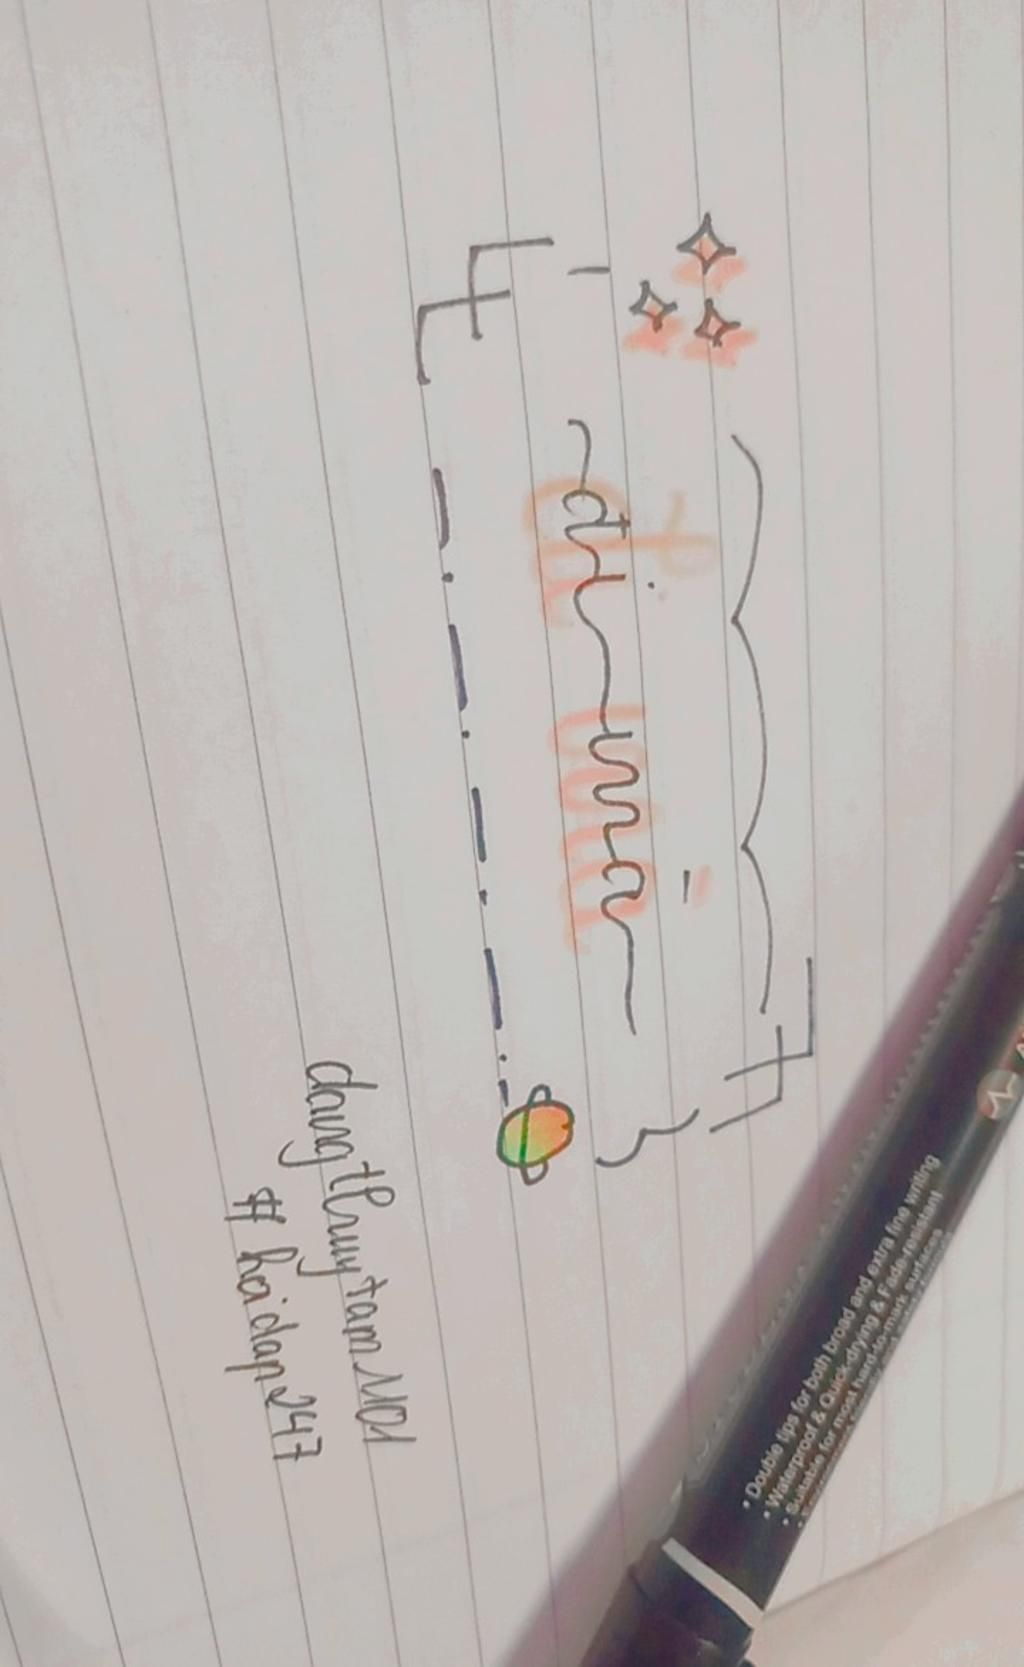 dì má
dangthuytam1101
# hoidap247
• Double tips for both broad and extra fine writing
• Waterproof & Quick-drying & Fade-resistant
• Suitable for most hard-to-mark surfaces